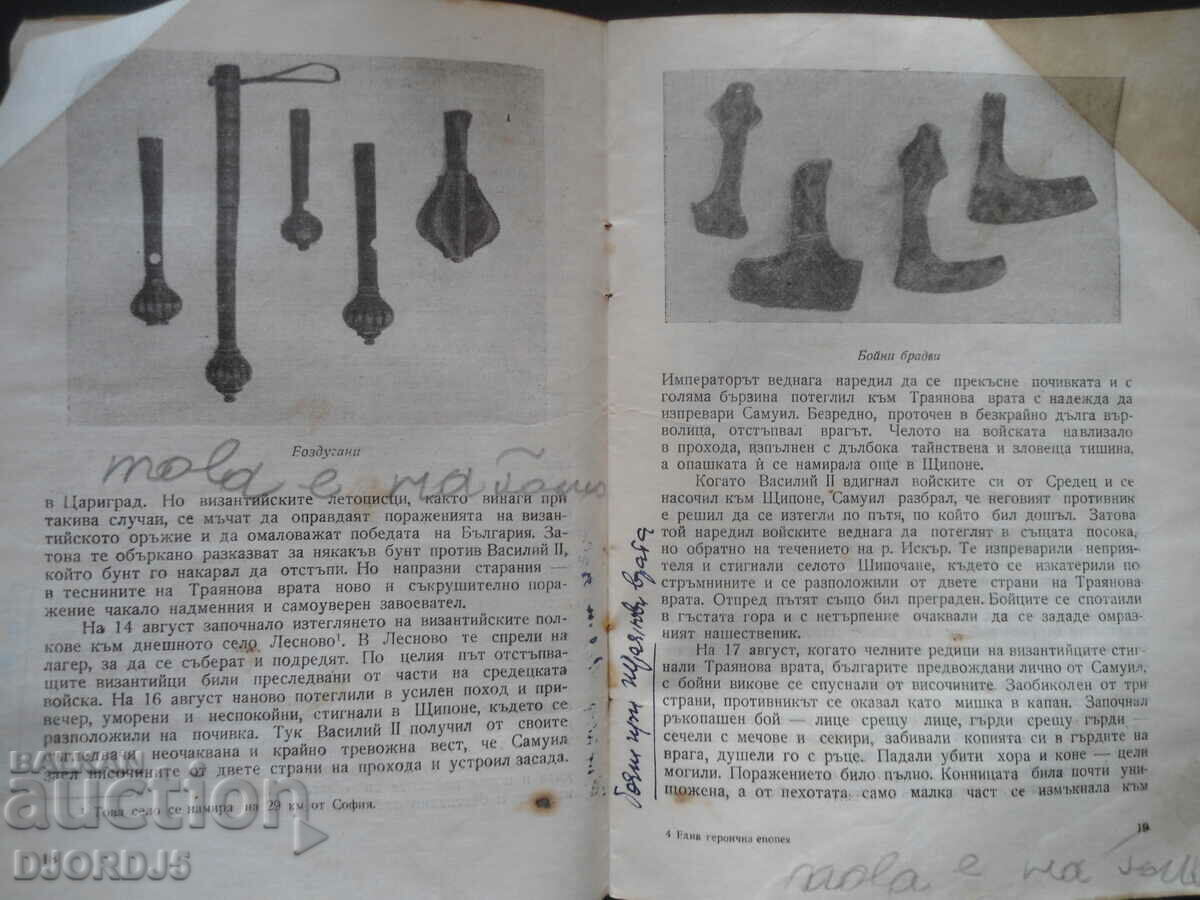 Боздугани
това е на
в Цариград. Но византийските летописци, както винаги при
такива случаи, се мъчат да оправдаят пораженията на визан-
тийското оръжие и да омаловажат победата на България. За-
това те объркано разказват за някакъв бунт против Василий II,
който бунт го накарал да отстъпи. Но напразни старания —
в теснините на Траянова врата ново и съкрушително пора-
жение чакало надменния и самоуверен завоевател.
На 14 август започнало изтеглянето на византийските пол-
кове към днешното село Лесново¹. В Лесново те спрели на
лагер, за да се съберат и подредят. По целия път отстъпва-
щите византийци били преследвани от части на средецката
войска. На 16 август наново потеглили в усилен поход и при-
вечер, уморени и неспокойни, стигнали в Щипоне, където се
разположили на почивка. Тук Василий II получил от своите
съгледвачи неочаквана и крайно тревожна вест, че Самуил
заел височините от двете страни на прохода и устроил засада.
¹ Това село се намира на 29 км от София.
18
Бойни брадви
Императорът веднага наредил да се прекъсне почивката и с
голяма бързина потеглил към Траянова врата с надежда да
изпревари Самуил. Безредно, проточен в безкрайно дълга вър-
волица, отстъпвал врагът. Челото на войската навлизало
в прохода, изпълнен с дълбока тайнствена и зловеща тишина,
а опашката ѝ се намирала още в Щипоне.
Когато Василий II вдигнал войските си от Средец и се
насочил към Щипоне, Самуил разбрал, че неговият противник
е решил да се изтегли по пътя, по който бил дошъл. Затова
той наредил войските веднага да потеглят в същата посока,
но обратно на течението на р. Искър. Те изпреварили неприя-
теля и стигнали селото Шипочане, където се изкатерили по
стръмнините и се разположили от двете страни на Траянова
врата. Отпред пътят също бил преграден. Бойците се спотаили
в гъстата гора и с нетърпение очаквали да се зададе омраз-
ният нашественик.
На 17 август, когато челните редици на византийците стиг-
нали Траянова врата, българите предвождани лично от Самуил,
с бойни викове се спуснали от височините. Заобиколен от три
страни, противникът се оказал като мишка в капан. Започнал
ръкопашен бой — лице срещу лице, гърди срещу гърди —
сечели с мечове и секири, забивали копията си в гърдите на
врага, душели го с ръце. Падали убити хора и коне — цели
могили. Поражението било пълно. Конницата била почти уни-
щожена, а от пехотата само малка част се измъкнала към
4 Една героична епопея
19
при Траянова врата
това е на
BALKAN
auction
DJORDJ5